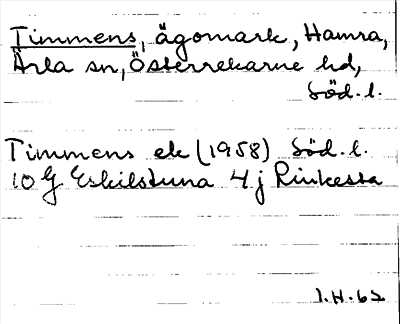 Timmens, ägomark, Hamra,
Ärla sn, Österrekarne hd,
Söd. l.
Timmens ek (1958) Söd. l.
10 G Eskilstuna 4 j Rinkesta
I.H. 62